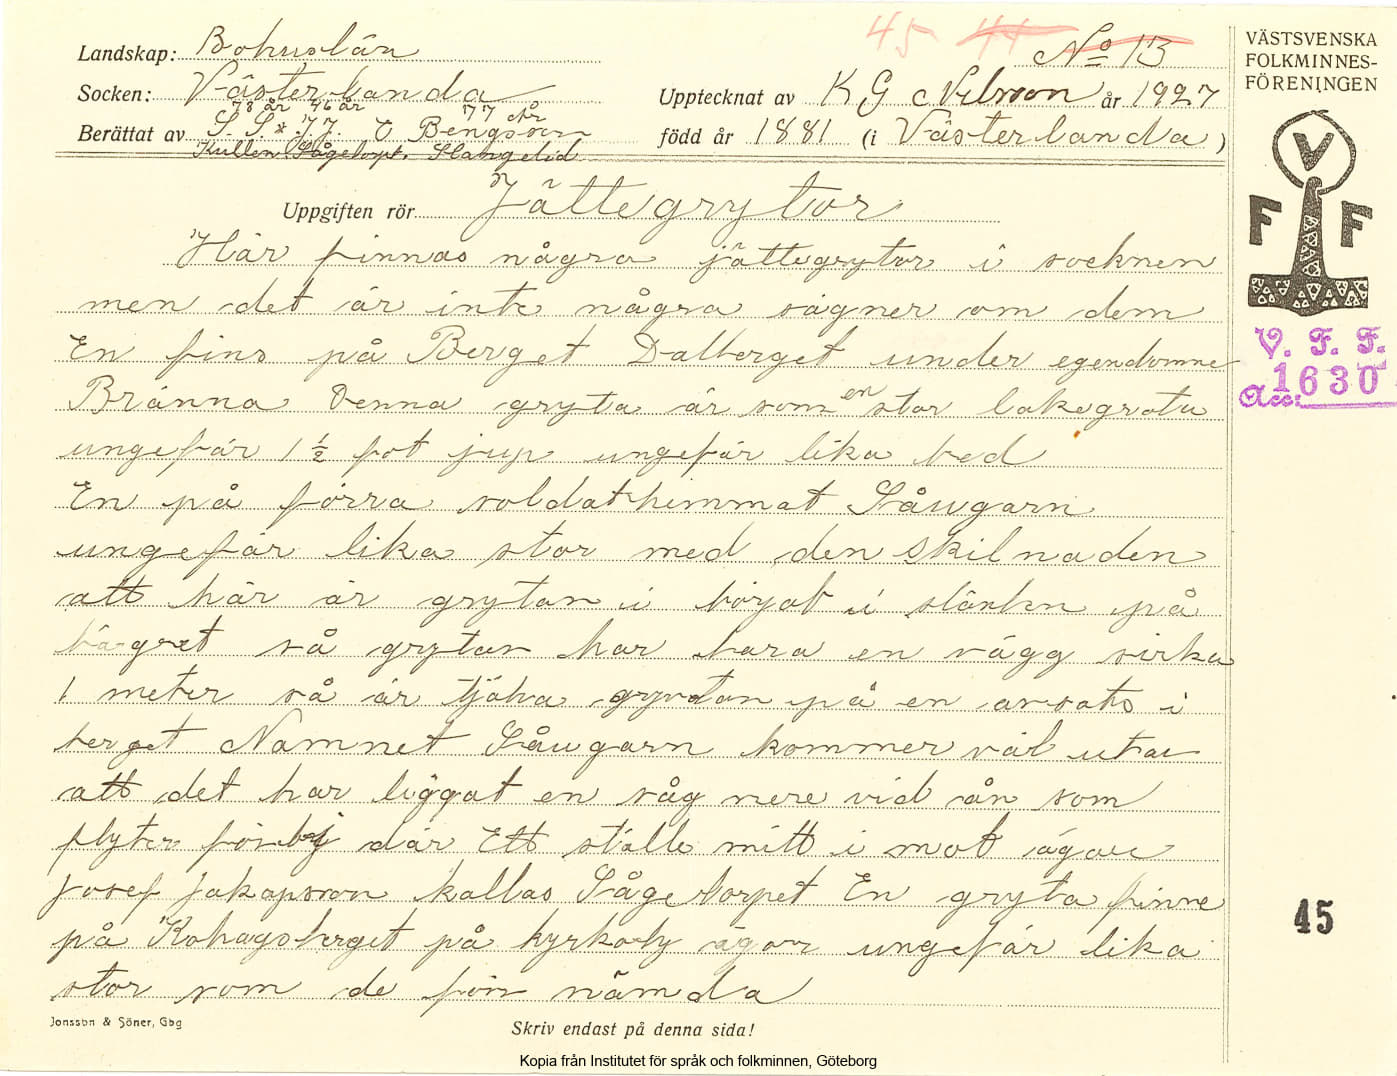 45 44 No 13
Landskap: Bohuslän
Socken: Västerlanda
78 år 46 år 77 år
Berättat av S. S. * J. J. C Bengtson
Kullen Sågetorpt. Slängelid
Upptecknat av K G Nelsson år 1927
född år 1881 (i Västerlanda )
VÄSTSVENSKA
FOLKMINNES-
FÖRENINGEN
V
F F
V. F. F.
Acc: 1630
Uppgiften rör Jättegrytor
Här finnas några jättegrytor i socknen
men det är inte några sägner om dem
En fins på Berget Dalberget under egendomne
Bränna Denna gryta är som en stor lakegrota
ungefär 1 ½ fot jup ungefär lika bred
En på förra soldathemmat Såugarn
ungefär lika stor med den skilnaden
att här är grytan i börjat i slänten på
bärget så grytan har bara en vägg sirka
1 meter så är själva grytan på en avsats i
berget Namnet Såugarn kommer väl utav
att det har liggat en såg nere vid ån som
flyter förbij där Ett ställe mitt i mot ägare
Josef Jakapsson kallas Sågetorpet En gryta finne
på Kohagsberget på kyrkoby ägor ungefär lika
stor som de förr nämda
45
Jonsson & Söner, Gbg
Skriv endast på denna sida!
Kopia från Institutet för språk och folkminnen, Göteborg